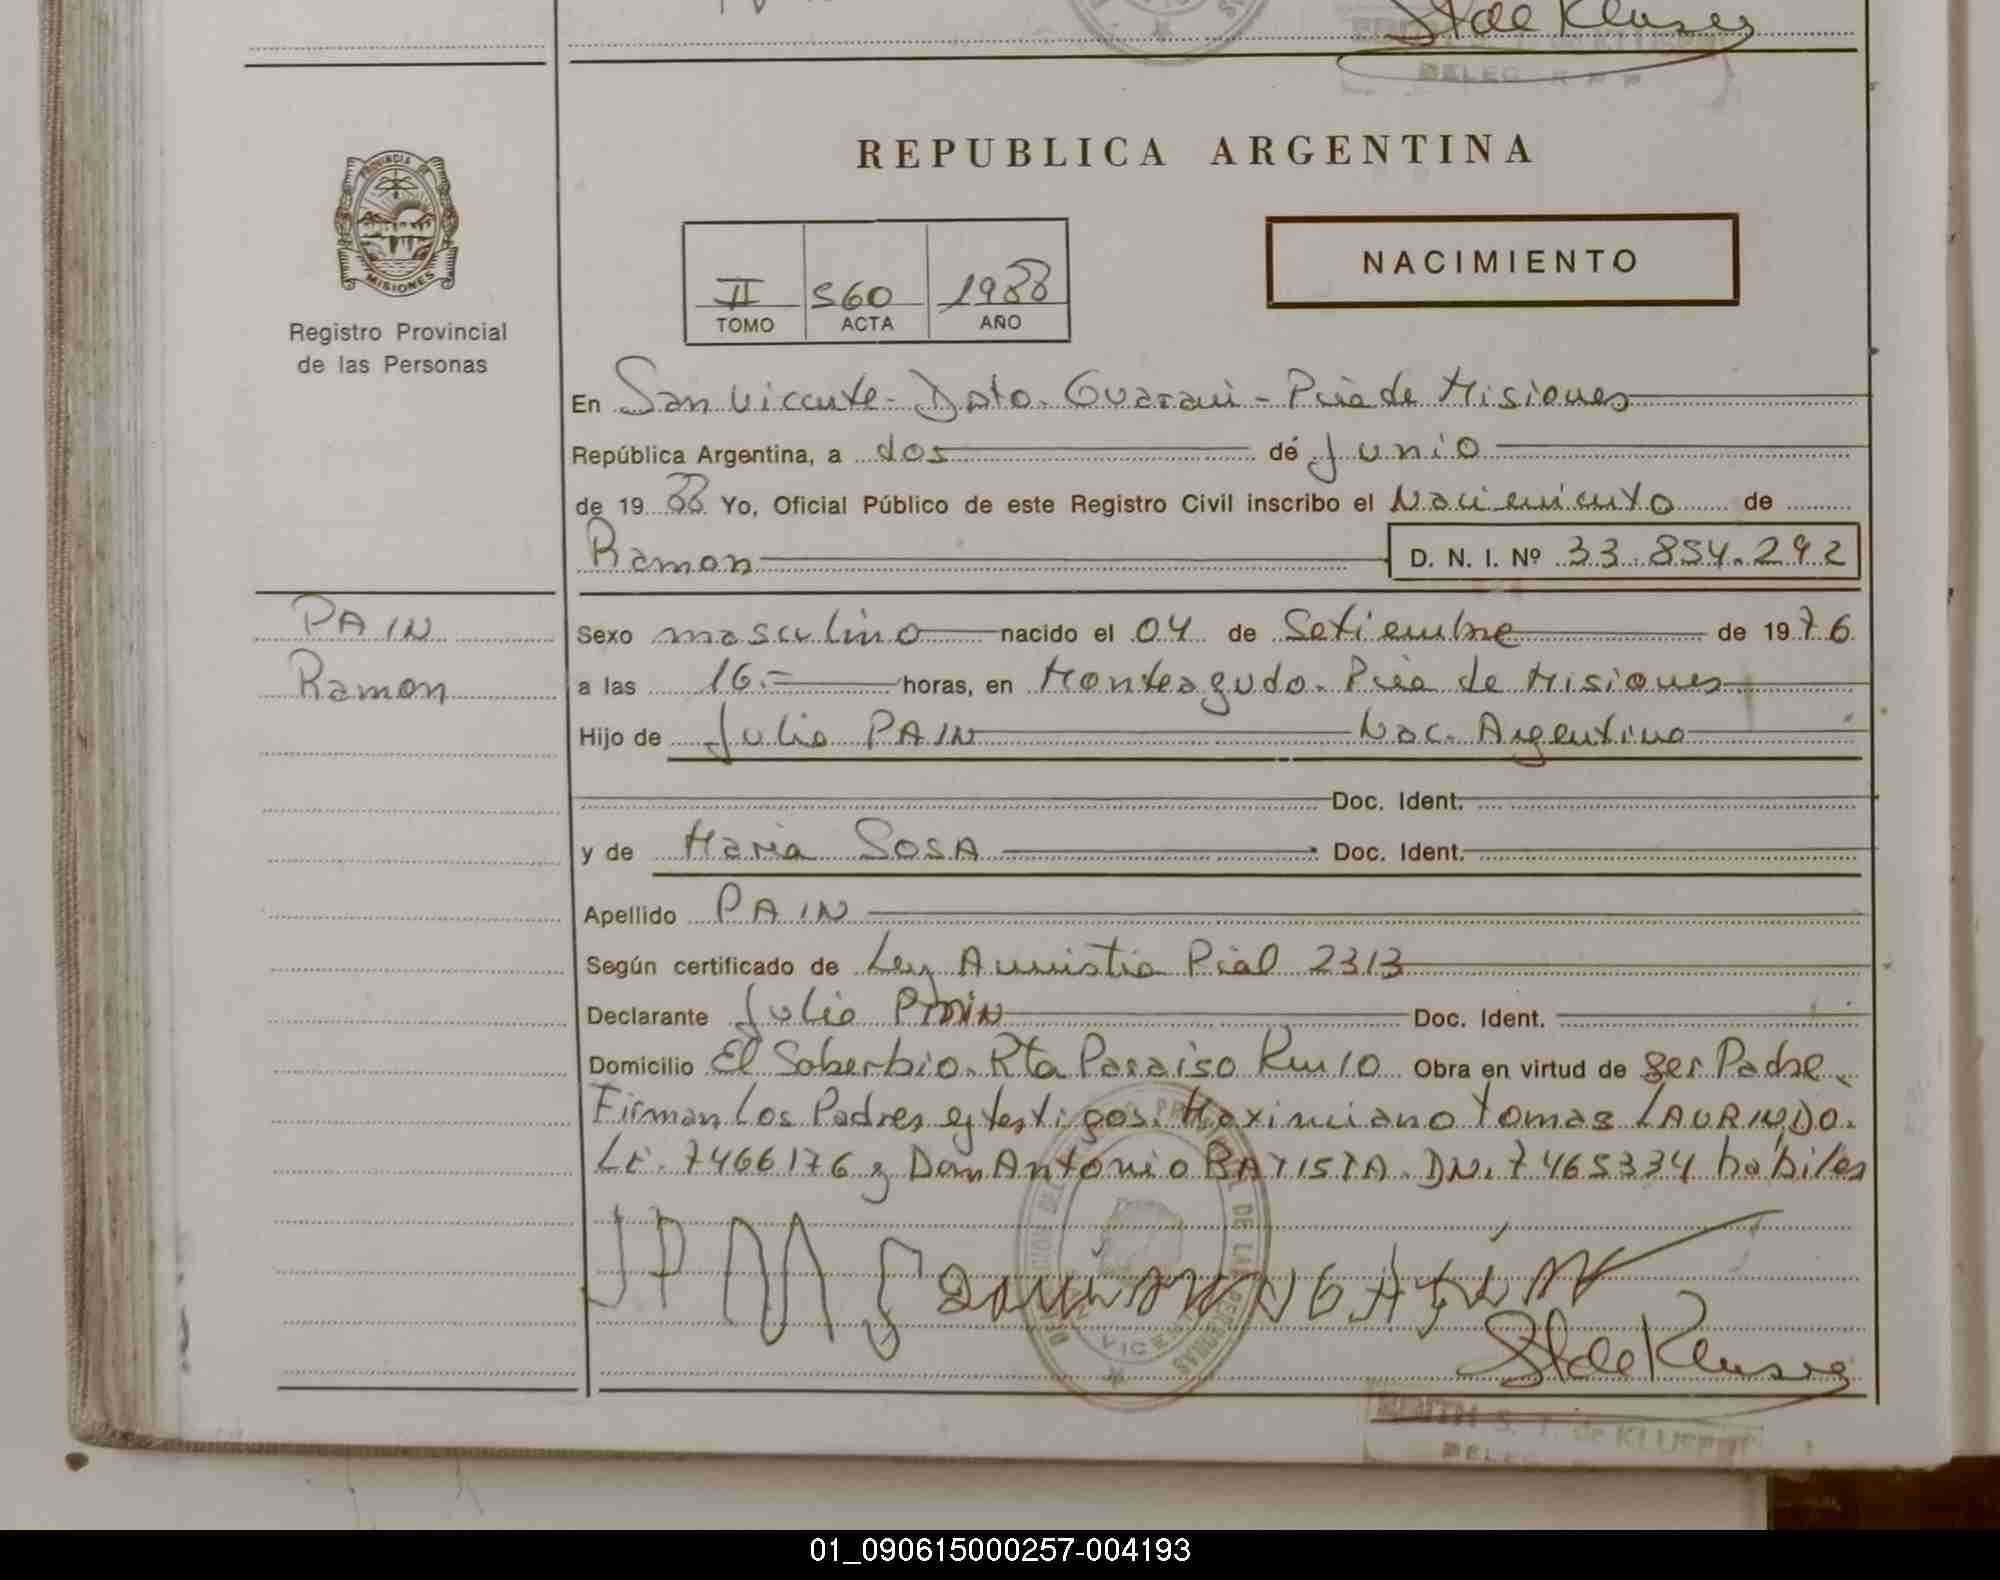 St de Kluser
DELEG. R P P
REPUBLICA ARGENTINA
PROVINCIA DE
MISIONES
Registro Provincial
de las Personas
II S60 1988
TOMO ACTA AÑO
NACIMIENTO
En San Vicente - Dpto. Guarani - Pcia de Misiones
República Argentina, a dos de Junio
de 19 88 Yo, Oficial Público de este Registro Civil inscribo el Nacimiento de
Ramon D. N. I. Nº 33.854.292
PAIN
Ramon
Sexo masculino nacido el 04 de Setiembre de 1976
a las 16.= horas, en Monteagudo. Pcia de Misiones
Hijo de Julio PAIN Nac. Argentino
Doc. Ident.
y de Maria SOSA Doc. Ident.
Apellido PAIN
Según certificado de Ley Amnistia Pial 2313
Declarante Julio PAIN Doc. Ident.
Domicilio El Soberbio. Rta Paraiso Km 10 Obra en virtud de ser Padre.
Firman Los Padres y testigos. Maximiano Tomas LAURINDO.
LE. 7466176 y Don Antonio BATISTA. DN. 7465334 habiles
JP MS
St de Kluser
EDITH S. T. de KLUSER
DELEG.
01_090615000257-004193